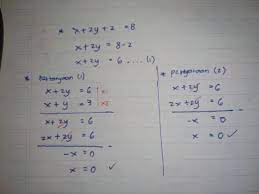 * x + 2y + 2 = 8
x + 2y = 8 - 2
x + 2y = 6 .... (1)
* Pertanyaan (1)
x + 2y = 6 | x1
x + y = 3 | x2
x + 2y = 6
2x + 2y = 6
-x = 0
x = 0 ✓
* Pertanyaan (2)
x + 2y = 6
2x + 2y = 6
-x = 0
x = 0 ✓